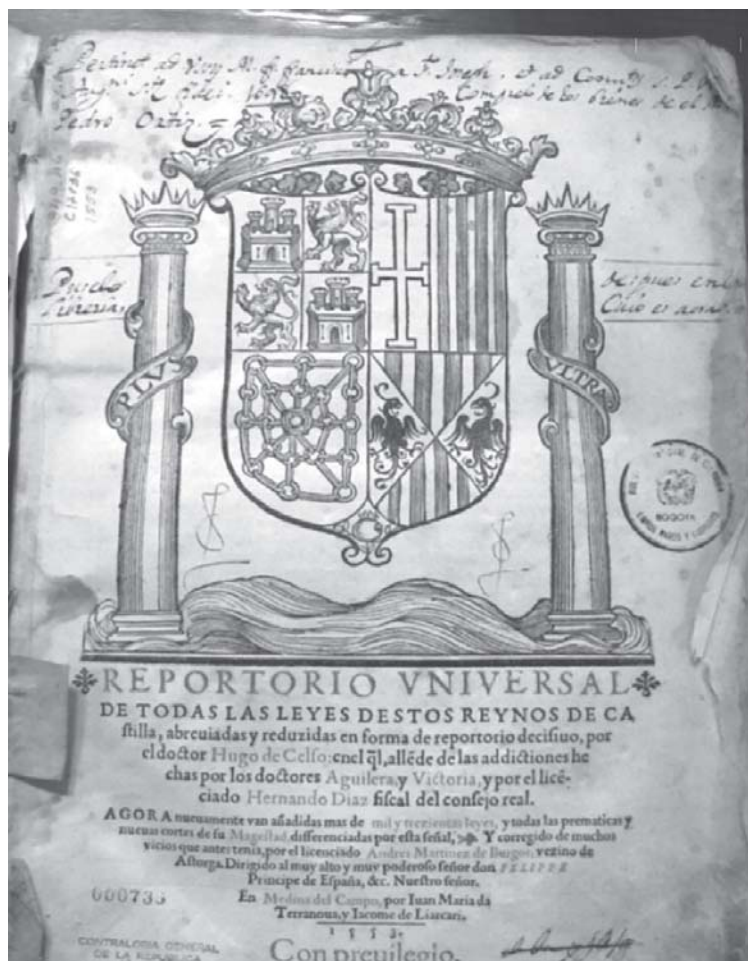 Pertinet ad
Compró de los bienes de el
Pedro Ortiz.
1553
despues en
PLVS
VLTRA
BOGOTA
REPORTORIO VNIVERSAL
DE TODAS LAS LEYES DESTOS REYNOS DE CA
stilla, abreuiadas y reduzidas en forma de reportorio decisiuo, por
el doctor Hugo de Celso: enel q̃l, allẽde de las addictiones he
chas por los doctores Aguilera, y Victoria, y por el licẽ-
ciado Hernando Diaz fiscal del consejo real.
AGORA nueuamente van añadidas mas de mil y trezientas leyes, y todas las prematicas y
nueuas cortes de su Magestad, differenciadas por esta señal, Y corregido de muchos
vicios que antes tenia, por el licenciado Andres Martinez de Burgos, vezino de
Astorga. Dirigido al muy alto y muy poderoso señor don FELIPPE
Principe de España, &c. Nuestro señor.
000735
En Medina del Campo, por Iuan Maria da
Terranoua, y Iacome de Liarcari.
1553.
CONTRALORIA GENERAL
DE LA REPUBLICA
Con preuilegio.